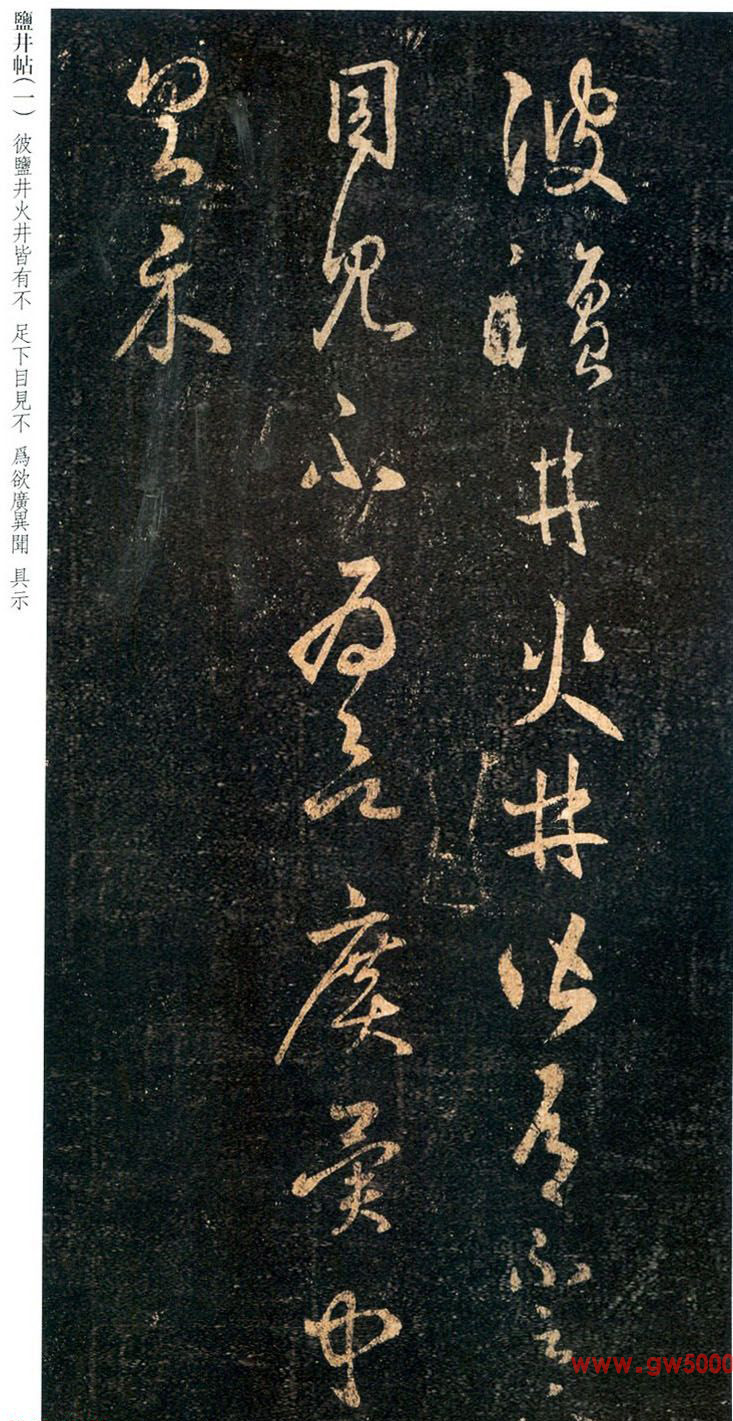 彼鹽井火井皆有不足下
目見不爲欲廣異聞
具示
鹽井帖(一) 彼鹽井火井皆有不 足下目見不 爲欲廣異聞 具示
www.gw5000